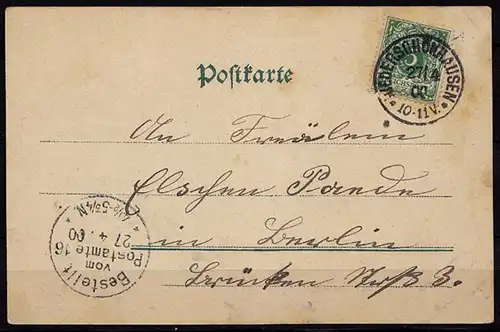 Postkarte
NIEDERSCHÖNHAUSEN
27/4
00
* 10-11V. *
5
An Fräulein
Elschen Paede
in Berlin
Brücken Straß 3.
Bestellt
vom
Postamte 16
27. 4. 00
4½-5¾N